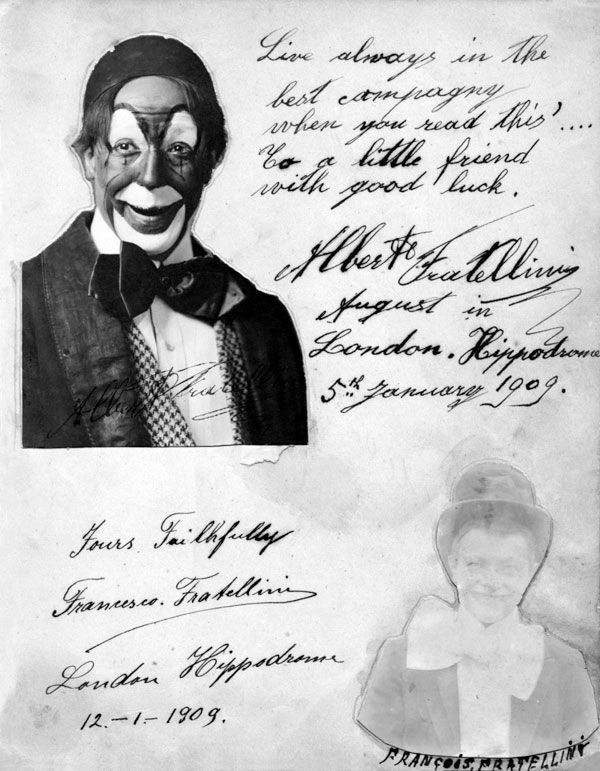 Live always in the
best campagny
when you read this'....
To a little friend
with good luck.
Alberto Fratellini
August in
London. Hippodrome
5th January 1909.
A Alberto Fratellini
Yours Faithfully
Francesco. Fratellini
London Hippodrome
12.-1-1909.
FRANÇOIS. FRATELLINI